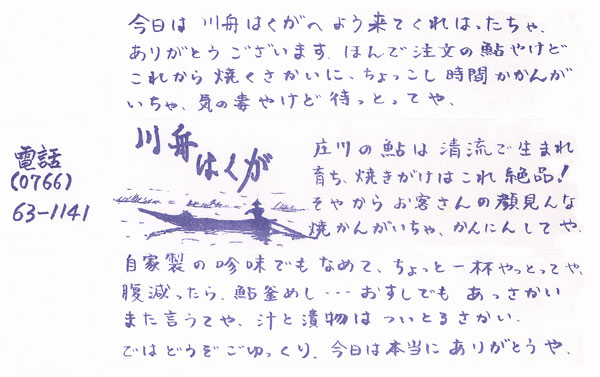 今日は 川舟はくがへ よう来てくれはったちゃ、
ありがとうございます。ほんで注文の鮎やけど
これから焼くさかいに、ちょっこし時間かかんが
いちゃ、気の毒やけど待っとってや、
電話
(0766)
63-1141
川舟
はくが
庄川の鮎は清流で生まれ
育ち、焼きがけはこれ絶品!
そやからお客さんの顔見んな
焼かんがいちゃ、かんにんしてや、
自家製の吟味でもなめて、ちょっと一杯やっとってや、
腹減ったら、鮎釜めし…おすしでもあっさかい
また言うてや、汁と漬物はついとるさかい、
ではどうぞごゆっくり、今日は本当にありがとうや、